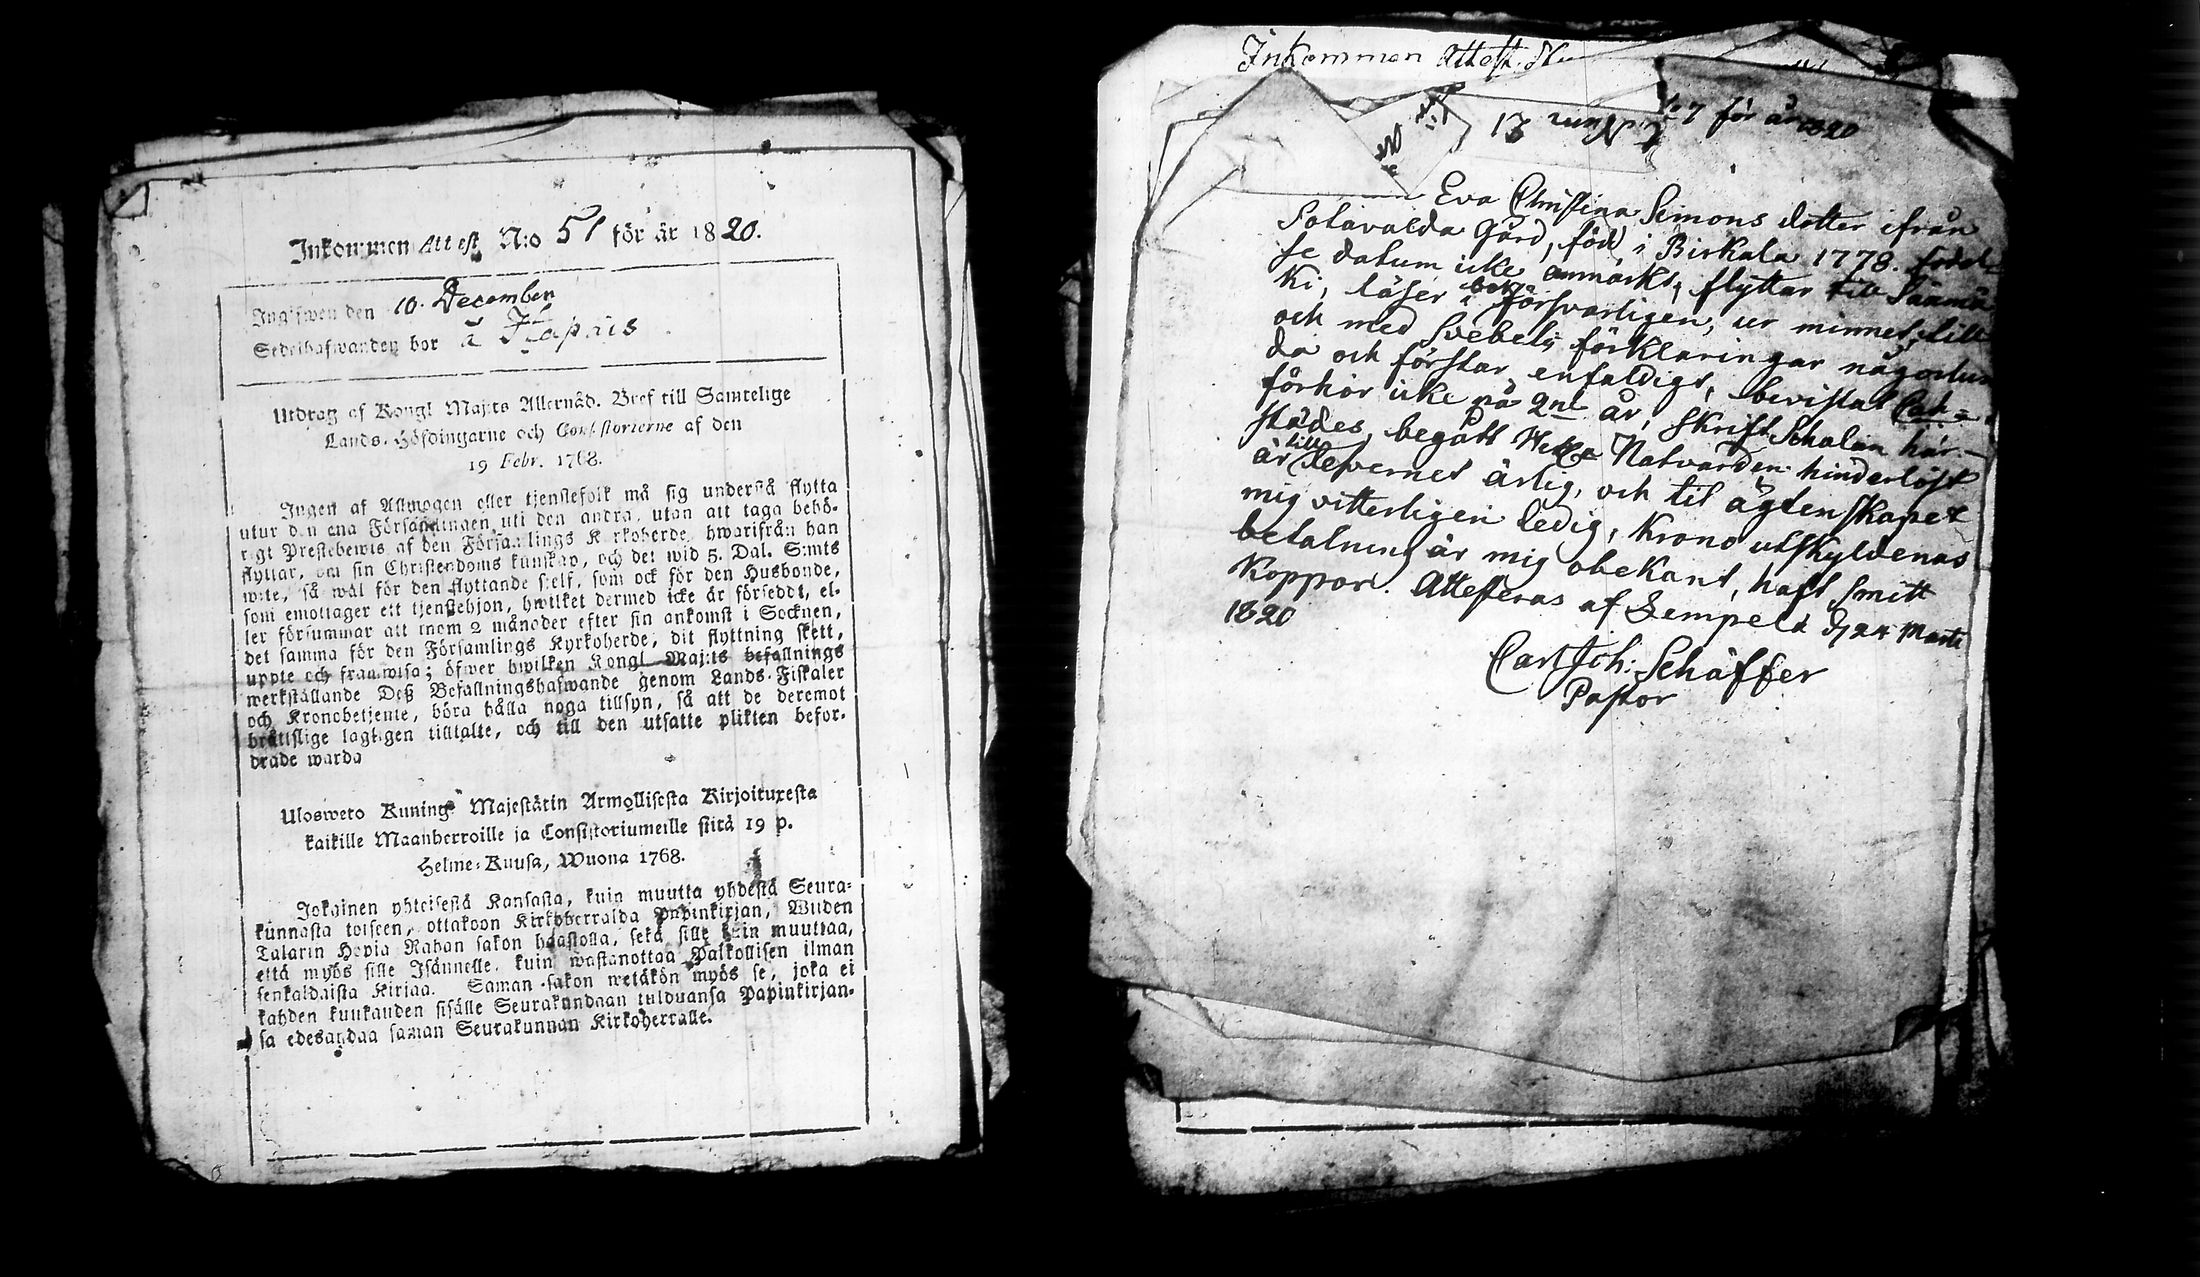 Inkommen Attest N:o 51 för år 1820.
Ingifwen den 10. December
Sedelhafwanden bor å Kapais
Utdrag af Kongl Maj:ts Allernåd. Bref till Samtelige
Lands-Höfdingarne och Consistorierne af den
19 Febr. 1768.
Ingen af Allmogen eller tjenstefolk må sig understå flytta
utur den ena Församlingen uti den andra, utan att taga behö-
rigt Prestebewis af den Församlings Kyrkoherde, hwarifrån han
flyttar, om sin Christendoms kunskap, och det wid 5. Dal. S:mts
wite, så wäl för den flyttande sjelf, som ock för den Husbonde,
som emottager ett tjenstehjon, hwilket dermed icke är försedt, el-
ler försummar att inom 2 månader efter sin ankomst i Socknen,
det samma för den Församlings Kyrkoherde, dit flyttning skett,
uppte och framwisa; öfwer hwilken Kongl Maj:ts befallnings
werkställande Deß Befallningshafwande genom Lands-Fiskaler
och Kronobetjente, böra hålla noga tillsyn, så att de deremot
bråttslige lagligen tilltalte, och till den utsatte plikten befor-
drade warda
Ulosweto Kuning: Majestätin Armollisesta Kirjoituxesta
kaikille Maanherroille ja Consistoriumeille siitä 19 p.
Helme-Kuusa, Wuona 1768.
Jokainen yhteisestä Kansasta, kuin muutta yhdestä Seura-
kunnasta toiseen, ottakoon Kirkoherralda Papinkirjan, Wiiden
Talarin Hopia Rahan sakon haastolla, sekä sille kuin muuttaa,
että myös sille Isännelle, kuin wastanottaa Palkollisen ilman
senkaldaista Kirjaa. Saman sakon wetäkön myös se, joka ei
kahden kuukauden sisälle Seurakundaan tulduansa Papinkirjan-
sa edesandaa saman Seurakunnan Kirkoherralle.
Inkommen Attest. N
13 N 7 för år 1820
Eva Christina Simons dotter ifrån
Sotavalda Gård, född i Birkala 1778. födel-
se datum icke anmärkt, flyttar till Säämä
ki, läser i bok försvarligen, ur minnet, lill
och med Svebelii förklaringar någorlun
da och förstår enfaldigt, bevistat Cat-
förhör icke på 2ne år, Skrift Scholan här-
städes, begått HHe Natvarden hinderlöst
är till Lefvernet ärlig, och til ägtenskapet
mig vitterligen ledig, Krono utskyldenas
betalning är mig obekant, haft Smitt
Koppor. Attesteras af Lempelä d. 24 Marti
1820
Carl Joh: Schäffer
Pastor